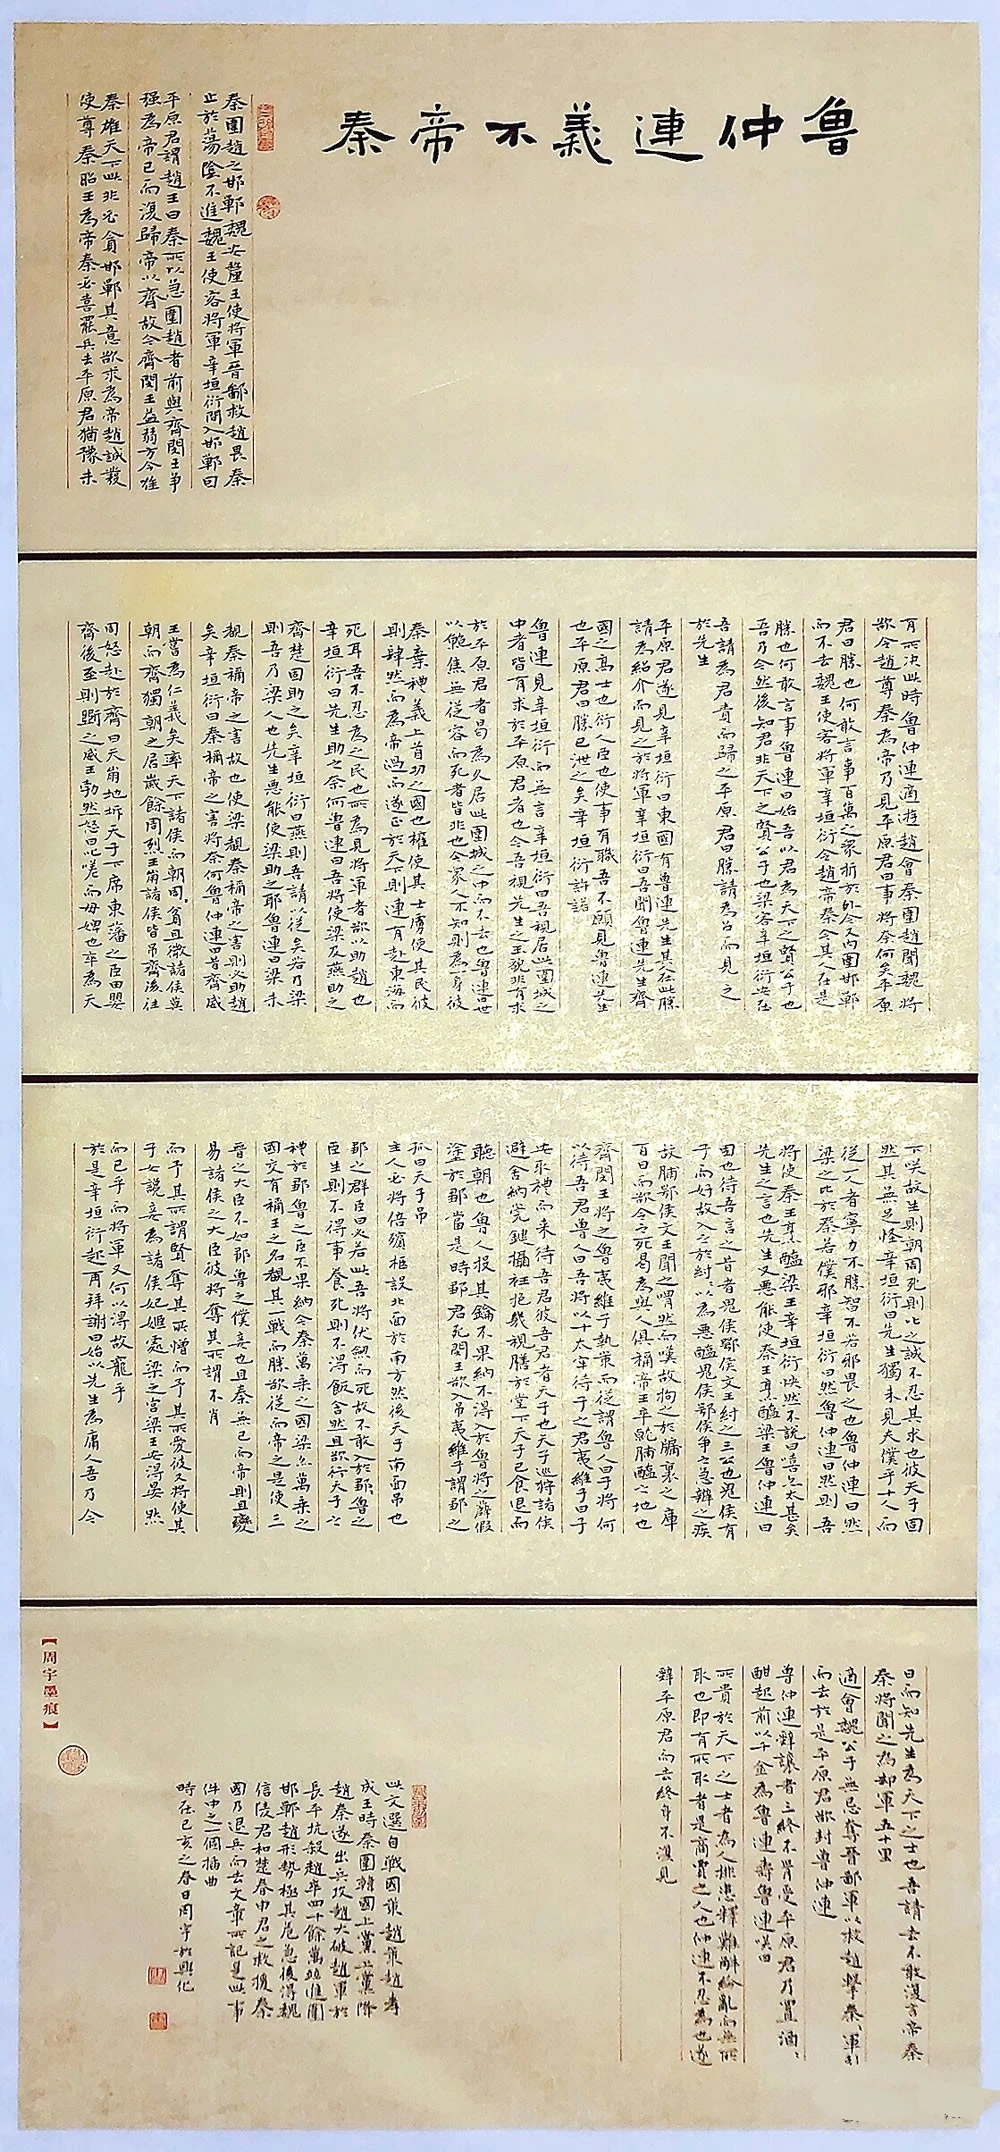 魯仲連義不帝秦
秦圍趙之邯鄲魏安釐王使將軍晉鄙救趙畏秦
止於蕩陰不進魏王使客將軍辛垣衍間入邯鄲曰
平原君謂趙王曰秦所以急圍趙者前與齊閔王爭
强為帝已而復歸帝以齊故今齊閔王益弱方今唯
秦雄天下此非必貪邯鄲其意欲求為帝趙誠發
使尊秦昭王為帝秦必喜罷兵去平原君猶豫未
有所決此時魯仲連適遊趙會秦圍趙聞魏將
欲令趙尊秦為帝乃見平原君曰事將奈何矣平原
君曰勝也何敢言事百萬之眾折於外今又内圍邯鄲
而不去魏王使客將軍辛垣衍令趙帝秦今其人在是
勝也何敢言事魯連曰始吾以君為天下之賢公子也
吾乃今然後知君非天下之賢公子也梁客辛垣衍安在
吾請為君責而歸之平原君曰勝請為召而見之
於先生
平原君遂見辛垣衍曰東國有魯連先生其人在此勝
請為紹介而見之於將軍辛垣衍曰吾聞魯連先生齊
國之高士也衍人臣也使事有職吾不願見魯連先生
也平原君曰勝已泄之矣辛垣衍許諾
魯連見辛垣衍而無言辛垣衍曰吾視居此圍城之
中者皆有求於平原君者也今吾視先生之玉貌非有求
於平原君者曷為久居此圍城之中而不去也魯連曰世
以鮑焦無從容而死者皆非也今眾人不知則為一身彼
秦棄禮義上首功之國也權使其士虜使其民彼
則肆然而為帝過而遂正於天下則連有赴東海而
死耳吾不忍為之民也所為見將軍者欲以助趙也
辛垣衍曰先生助之奈何魯連曰吾將使梁及燕助之
齊楚固助之矣辛垣衍曰燕則吾請以從矣若乃梁
則吾乃梁人也先生惡能使梁助之耶魯連曰梁未
覩秦稱帝之害故也使梁覩秦稱帝之害則必助趙
矣辛垣衍曰秦稱帝之害將奈何魯仲連曰昔齊威
王嘗為仁義矣率天下諸侯而朝周貧且微諸侯莫
朝而齊獨朝之居歲餘周烈王崩諸侯皆弔齊後往
周怒赴於齊曰天崩地坼天子下席東藩之臣田嬰
齊後至則斮之威王勃然怒曰叱嗟而母婢也卒為天
下咲故生則朝周死則叱之誠不忍其求也彼天子固
然其無足怪辛垣衍曰先生獨未見夫僕乎十人而
從一人者寧力不勝智不若邪畏之也魯仲連曰然
梁之比於秦若僕邪辛垣衍曰然魯仲連曰然則吾
將使秦王烹醢梁王辛垣衍怏然不說曰嘻亦太甚矣
先生之言也先生又惡能使秦王烹醢梁王魯仲連曰
固也待吾言之昔者鬼侯鄂侯文王紂之三公也鬼侯有
子而好故入之於紂紂以為惡醢鬼侯鄂侯爭之急辨之疾
故脯鄂侯文王聞之喟然而嘆故拘之於牖里之庫
百日而欲令之死曷為與人俱稱帝王卒就脯醢之地也
齊閔王將之魯夷維子執策而從謂魯人曰子將何
以待吾君魯人曰吾將以十太牢待子之君夷維子曰子
安取禮而來待吾君彼吾君者天子也天子巡狩諸侯
避舍納筦鍵攝衽抱几視膳於堂下天子已食退而
聽朝也魯人投其鑰不果納不得入於魯將之薛假
塗於鄒當是時鄒君死閔王欲入弔夷維子謂鄒之
孤曰天子弔
主人必將倍殯柩設北面於南方然後天子南面弔也
鄒之群臣曰必若此吾將伏劍而死故不敢入於鄒魯之
臣生則不得事養死則不得飯含然且欲行天子之
禮於鄒魯之臣不果納今秦萬乘之國梁亦萬乘之
國交有稱王之名覩其一戰而勝欲從而帝之是使三
晉之大臣不如鄒魯之僕妾也且秦無已而帝則且變
易諸侯之大臣彼將奪其所謂不肖
而予其所謂賢奪其所憎而予其所愛彼又將使其
子女讒妾為諸侯妃姬處梁之宮梁王安得晏然
而已乎而將軍又何以得故寵乎
於是辛垣衍起再拜謝曰始以先生為庸人吾乃今
日而知先生為天下之士也吾請去不敢復言帝秦
秦將聞之為却軍五十里
適會魏公子無忌奪晉鄙軍以救趙擊秦秦軍引
而去於是平原君欲封魯仲連
魯仲連辭讓者三終不肯受平原君乃置酒酒
酣起前以千金為魯連壽魯連咲曰
所貴於天下之士者為人排患釋難解紛亂而無所
取也即有所取者是商賈之人也仲連不忍為也遂
辭平原君而去終身不復見
此文選自戰國策趙策趙孝
成王時秦圍韓國上黨上黨降
趙秦遂出兵攻趙大破趙軍於
長平坑殺趙卒四十餘萬並進圍
邯鄲趙形勢極其危急後得魏
信陵君和楚春申君之救援秦
國乃退兵而去文章所記是此事
件中之一個插曲
時在己亥之春日周宇於興化
【周宇墨痕】